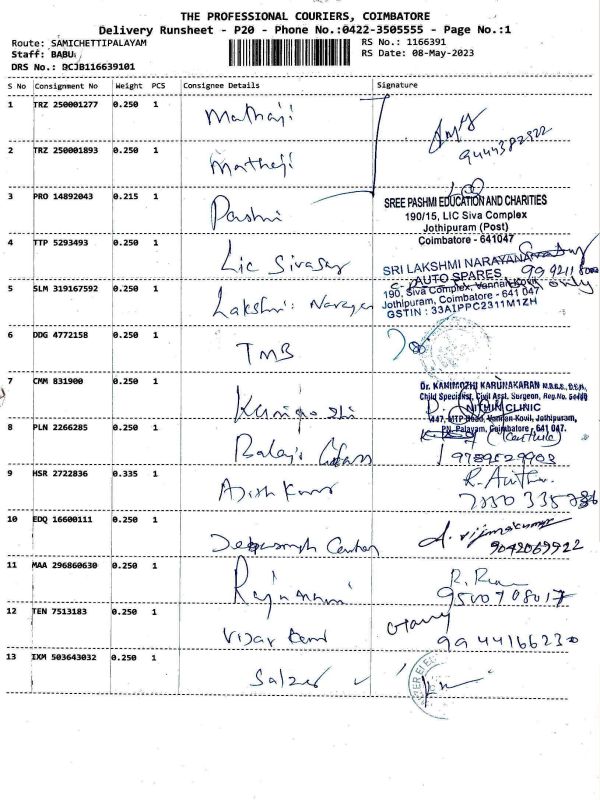 THE PROFESSIONAL COURIERS, COIMBATORE
Delivery Runsheet - P20 - Phone No.:0422-3505555 - Page No.:1
Route: SAMICHETTIPALAYAM RS No.: 1166391
Staff: BABU RS Date: 08-May-2023
DRS No.: BCJB116639101
S No Consignment No Weight PCS Consignee Details Signature
1 TRZ 250001277 0.250 1 Mathaji
9444382522
2 TRZ 250001893 0.250 1 Matheji
3 PRO 14892043 0.215 1 Pashmi
SREE PASHMI EDUCATION AND CHARITIES
190/15, LIC Siva Complex
Jothipuram (Post)
Coimbatore - 641047
4 TTP 5293493 0.250 1 Lic Sivasay
SRI LAKSHMI NARAYANA
AUTO SPARES
190, Siva Complex, Vannan Kovil
Jothipuram, Coimbatore - 641 047
GSTIN : 33AIPPC2311M1ZH
5 SLM 319167592 0.250 1 Lakshmi Narayan
6 DDG 4772158 0.250 1 TMB
7 CMM 831900 0.250 1
Dr. KANIMOZHI KARUNAKARAN M.B.B.S., D.C.H.,
Child Specialist, Civil Asst. Surgeon, Reg.No.
NITHIN CLINIC
Vannan Kovil, Jothipuram,
PN. Palayam, Coimbatore - 641 047.
8 PLN 2266285 0.250 1 Balaji Glass
9789629903
9 HSR 2722836 0.335 1
R. Anitha
10 EDQ 16600111 0.250 1
9042069922
11 MAA 296860630 0.250 1
9500708017
12 TEN 7513183 0.250 1 Vijay
9944166230
13 IXM 503643032 0.250 1 Salzer